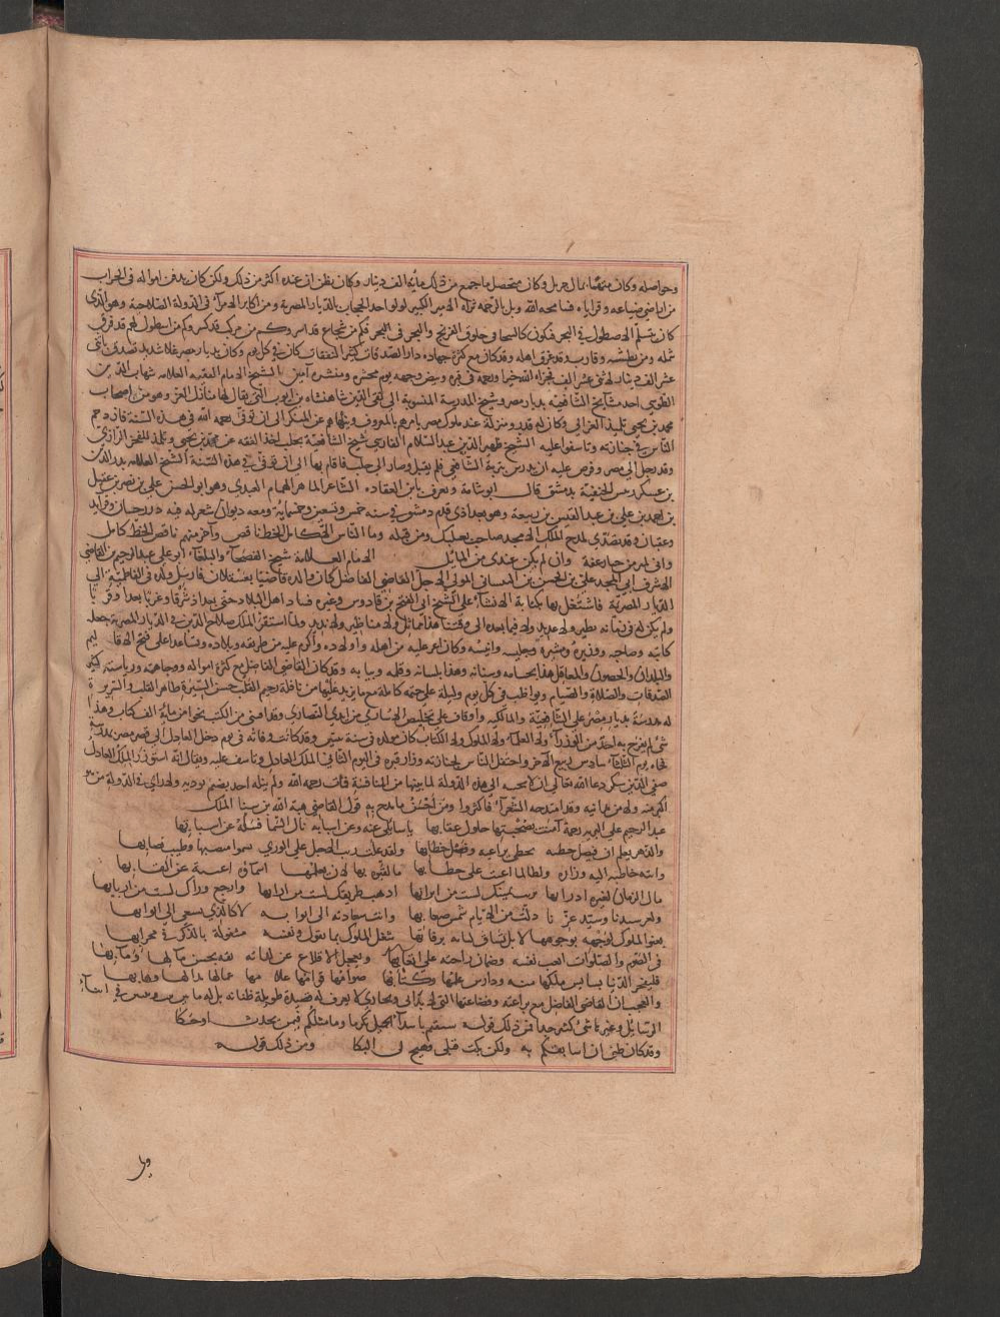 وحواصله وكان متهما بمال جزيل وكان متحصل ما جمع من ذلك مائة الف دينار وكان يظن ان عنده اكثر من ذلك ولكن كان يدفن امواله في الخراب
من اراضي ضياعه وقراياه فسامحه الله وبل بالرحمة ثراه الامير الكبير لولو احد الحجاب بالديار المصرية ومن اكابر الامراء في الدولة الصلاحية وهو الذي
كان يتسلم الاصطول في البحر فكم من شجاع قد اسر وكم من مركب قد كسر وكم من اسطول لهم قد فرق
شمله ومن بطسه وقارب وقد غرق اهله وقد كان مع كثرة جهاده دار الصدقات كثير النفقات كان في كل يوم وكان بديار مصر غلا شديد تصدق باثنى
عشر الف دينار لاثنى عشر الف فجزاه الله خيرا ورحمه في قبره وبيض وجهه يوم محشره ومنشره آمين الشيخ الامام الفقيه العلامه شهاب الدين
الطوسي احد مشايخ الشافعية بديار مصر وشيخ المدرسة المنسوبة الى تقي الدين شاهنشاه بن ايوب التي يقال لها منازل العز وهو من اصحاب
محمد بن يحيى تلميذ الغزالي وكان له قدر ومنزلة عند ملوك مصر يامرهم بالمعروف وينهاهم عن المنكر الى ان توفي رحمه الله في هذه السنة فازدحم
الناس في جنازته وتاسفوا عليه الشيخ ظهير الدين عبد السلام الفارسي شيخ الشافعية بحلب اخذ الفقه عن محمد بن يحيى وتلمذ للفخر الرازي
وقد رحل الى مصر وعرض عليه ان يدرس بتربة الشافعي فلم يقبل وصار الى حلب فاقام بها الى ان توفي في هذه السنة الشيخ العلامه بدر الدين
بن عسكر رئيس الحنفية بدمشق قال ابو شامة ويعرف بابن العقاده الشاعر الماهر الهمام العبدي وهو ابو الحسن علي بن نصر بن عقيل
بن احمد بن علي بن عبد القيس بن ربيعة وهو بغدادي قدم دمشق في سنه خمس وتسعين وخمسماية ومعه ديوان شعر له فيه درر حسان وفرايد
وعقيان وقد تصدى لمدح الملك الامجد صاحب بعلبك ومن قيله وما الناس الا كامل الحظ ناقص وآخر منهم ناقص الحظ كامل
واني لمثر من حيا وعفة وان لم يكن عندي من المال الامام العلامة شيخ الفصحاء والبلغاء ابو علي عبد الرحيم بن القاضي
الاشرف ابي المجد علي بن الحسن بن المولى الاجل القاضي الفاضل كان والده قاضيا بعسقلان فارسل ولده في الفاطمية الى
الديار المصرية فاشتغل بها بكتابة الانشاء على الشيخ ابي الفتح بن قادوس وغيره فساد اهل البلاد حتى بغداد شرقا وغربا بعدا وقربا
ولم يكن له في زمانه نظير ولا عديد ولا فيما بعده الى وقتنا هذا مماثل ولا مناظر ولا نديد ولما استقر الملك صلاح الدين في الديار المصرية جعله
كاتبه وصاحبه ووزيره ومشيره وجليسه وانيسه وكان اعز عليه من اهله واولاده واكرم عليه من طريفه وتلاده وتساعدا على فتح الاقاليم
والبلدان والحصون والمعاقل هذا بحسامه وسنانه وهذا بلسانه وقلمه وبيانه وقد كان القاضي الفاضل مع كثرة امواله ووجاهته ورياسته كثير
الصدقات والصلاة والصيام ويواظب في كل يوم وليلة على ختمه كاملة مع ما يزيد عليها من نافلة رحيم القلب حسن السيرة طاهر القلب والسريرة
له مدرسة بديار مصر على الشافعية والمالكيه واوقاف على تخليص الاسارى من ايدي النصارى وقد اقتنى من الكتب نحوا من مائة الف كتاب وهذا
شئ لم يفرح به احد من الوزراء ولا العلماء ولا الملوك ولا الكتاب كان مولده في سنة وقد كانت وفاته في يوم دخل العادل الى قصر مصر بمدرسته
فجاه يوم الثلثاء سادس ربيع الآخر واحتفل الناس بجنازته وزار قبره في اليوم الثاني الملك العادل وتاسف عليه ويقال انه استوزر الملك العادل
صفي الدين بن شكر دعا الله تعالى ان لا يحييه الى هذه الدولة لما بينهما من المنافسة فمات رحمه الله ولم ينله احد بضيم ولا اذية ولا راى في الدولة من هو
اكبر منه ولا من يدانيه وقد امتدحه الشعراء فاكثروا ومن احسن ما مدح به قول القاضي هبة الله بن سنا الملك
عبد الرحيم على البرية رحمة آمنت بصحبتها حلول عقابها يا سائلي عنه وعن اسبابه نال السما فسله عن اسبابها
والدهر يعلم ان فيصل خطبه بخطى يراعه وفضل خطابها ولقد علت رتب الاجل على الورى بسمو منصبها وطيب نصابها
واتته خاطبه اليه وزارة ولطالما اعيت على خطابها
مال الزمان لغيره ارجع وراك لست من اربابها
وانت سعادته الى ابوابه لا كالذي يسعى الى ابوابها
تعنو الملوك لوجهه بوجوهها لا بل تساق لبابه برقابها شغل الملوك بما يقول ونفسه مشغولة بالذكر في محرابها
في الصوم والصلوات اتعب نفسه وضمان راحته على اتعابها وتعجل الاقلاع عن لذاته ثقه بحسن مآلها ومآبها
فلتفخر الدنيا بسايس ملكها منه ودارس علمها وكتابها صوامها قوامها علامها عمالها بذالها وهابها
والعجب ان القاضي الفاضل مع براعته وفصاحته التي لا يدانى ولا يجارى لا يعرف له قصيدة طويلة طنانه بل له ما بين بيت وبيتين في اثناء
الرسائل وغيرها شئ كثير جدا فمن ذلك قوله سبقتم باسداء الجميل تكرما وما مثلكم فيمن يحدث او حكا
وقد كان ظني ان اسابقكم به ولكن بكت قبلي فهيج لي البكا ومن ذلك قوله